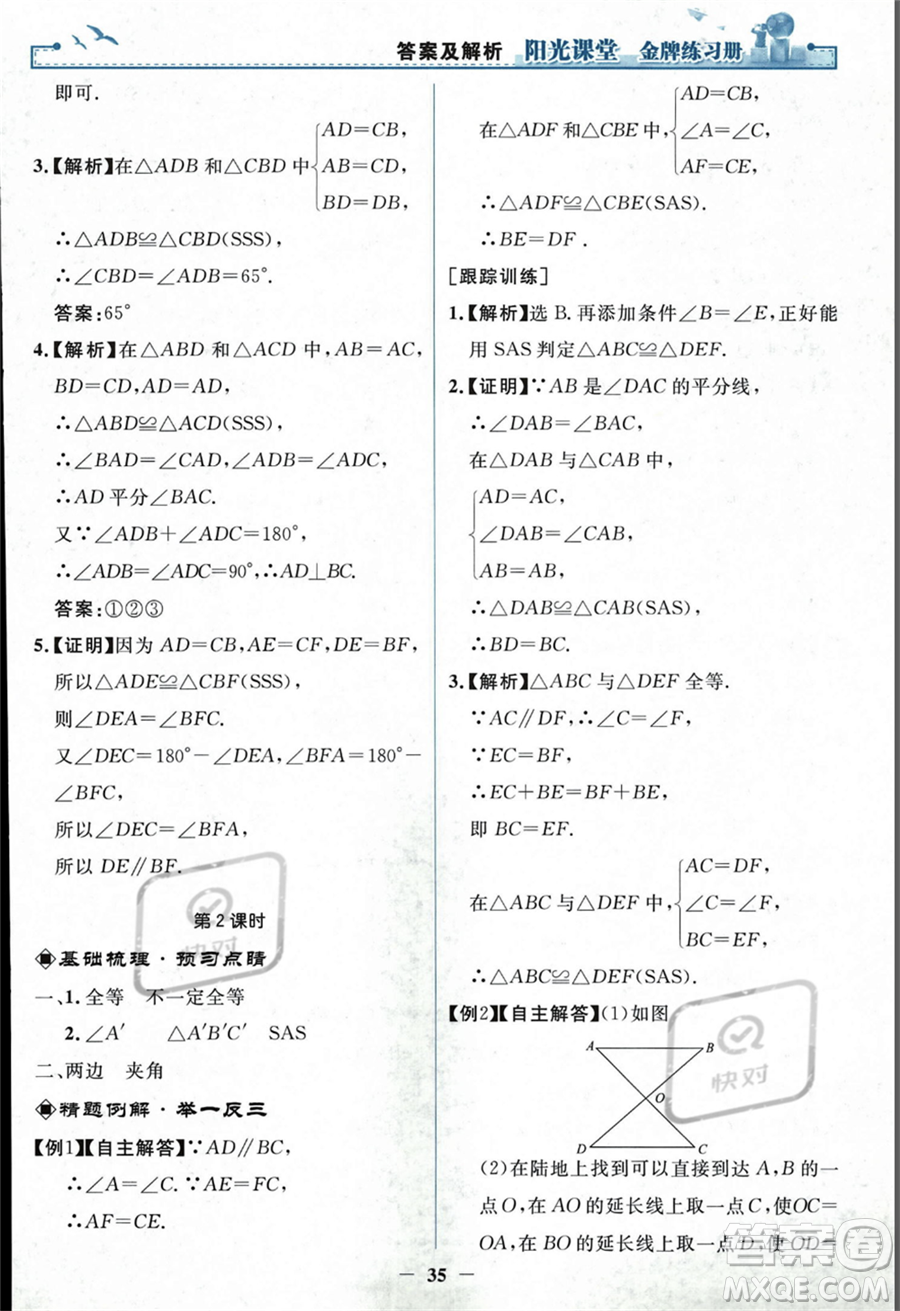 答案及解析 阳光课堂 金牌练习册
即可.
AD=CB,
3.【解析】在△ADB和△CBD中 AB=CD,
BD=DB,
∴△ADB≌△CBD(SSS),
∴∠CBD=∠ADB=65°.
答案:65°
4.【解析】在△ABD和△ACD中,AB=AC,
BD=CD,AD=AD,
∴△ABD≌△ACD(SSS)
∴∠BAD=∠CAD,∠ADB=∠ADC,
∴AD平分∠BAC.
又∵∠ADB+∠ADC=180°,
∴∠ADB=∠ADC=90°,∴AD⊥BC.
答案:①②③
5.【证明】因为AD=CB,AE=CF,DE=BF,
所以△ADE≌△CBF(SSS),
则∠DEA=∠BFC.
又∠DEC=180°-∠DEA,∠BFA=180°-
∠BFC,
所以∠DEC=∠BFA,
所以DE∥BF.
第2课时
基础梳理·预习点睛
一、1.全等 不一定全等
2.∠A′ △A′B′C′ SAS
二、两边 夹角
精题例解·举一反三
【例1】【自主解答】∵AD∥BC,
∴∠A=∠C.∵AE=FC,
∴AF=CE.
AD=CB,
在△ADF和△CBE中, ∠A=∠C,
AF=CE,
∴△ADF≌△CBE(SAS).
∴BE=DF.
[跟踪训练]
1.【解析】选B.再添加条件∠B=∠E,正好能
用SAS判定△ABC≌△DEF.
2.【证明】∵AB是∠DAC的平分线,
∴∠DAB=∠CAB,
在△DAB与△CAB中,
AD=AC,
∠DAB=∠CAB,
AB=AB,
∴△DAB≌△CAB(SAS)
∴BD=BC.
3.【解析】△ABC与△DEF全等.
∵AC∥DF,∴∠C=∠F,
∵EC=BF,
∴EC+BE=BF+BE,
即BC=EF.
AC=DF,
在△ABC与△DEF中, ∠C=∠F,
BC=EF,
∴△ABC≌△DEF(SAS).
【例2】【自主解答】(1)如图
A B
O
D C
(2)在陆地上找到可以直接到达A,B的一
点O,在AO的延长线上取一点C,使OC=
OA,在BO的延长线上取一点D,使OD=
35
快对
快对
答案圈
MXQE.COM